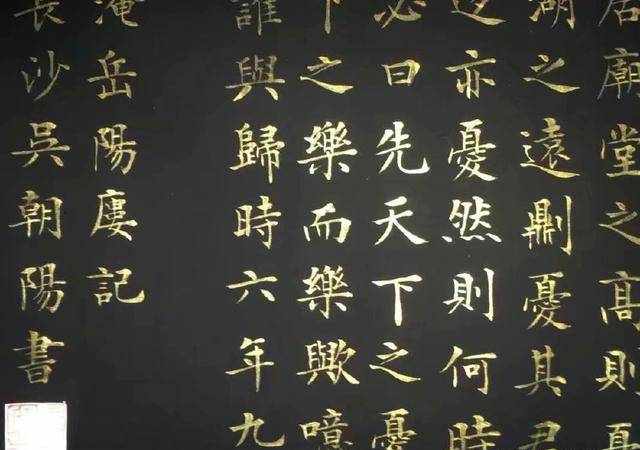 居廟堂之高則憂
湖之遠則憂其君
退亦憂然則何時
必曰先天下之憂
下之樂而樂歟噫
誰與歸時六年九
淹岳陽廔記
長沙吳朝陽書